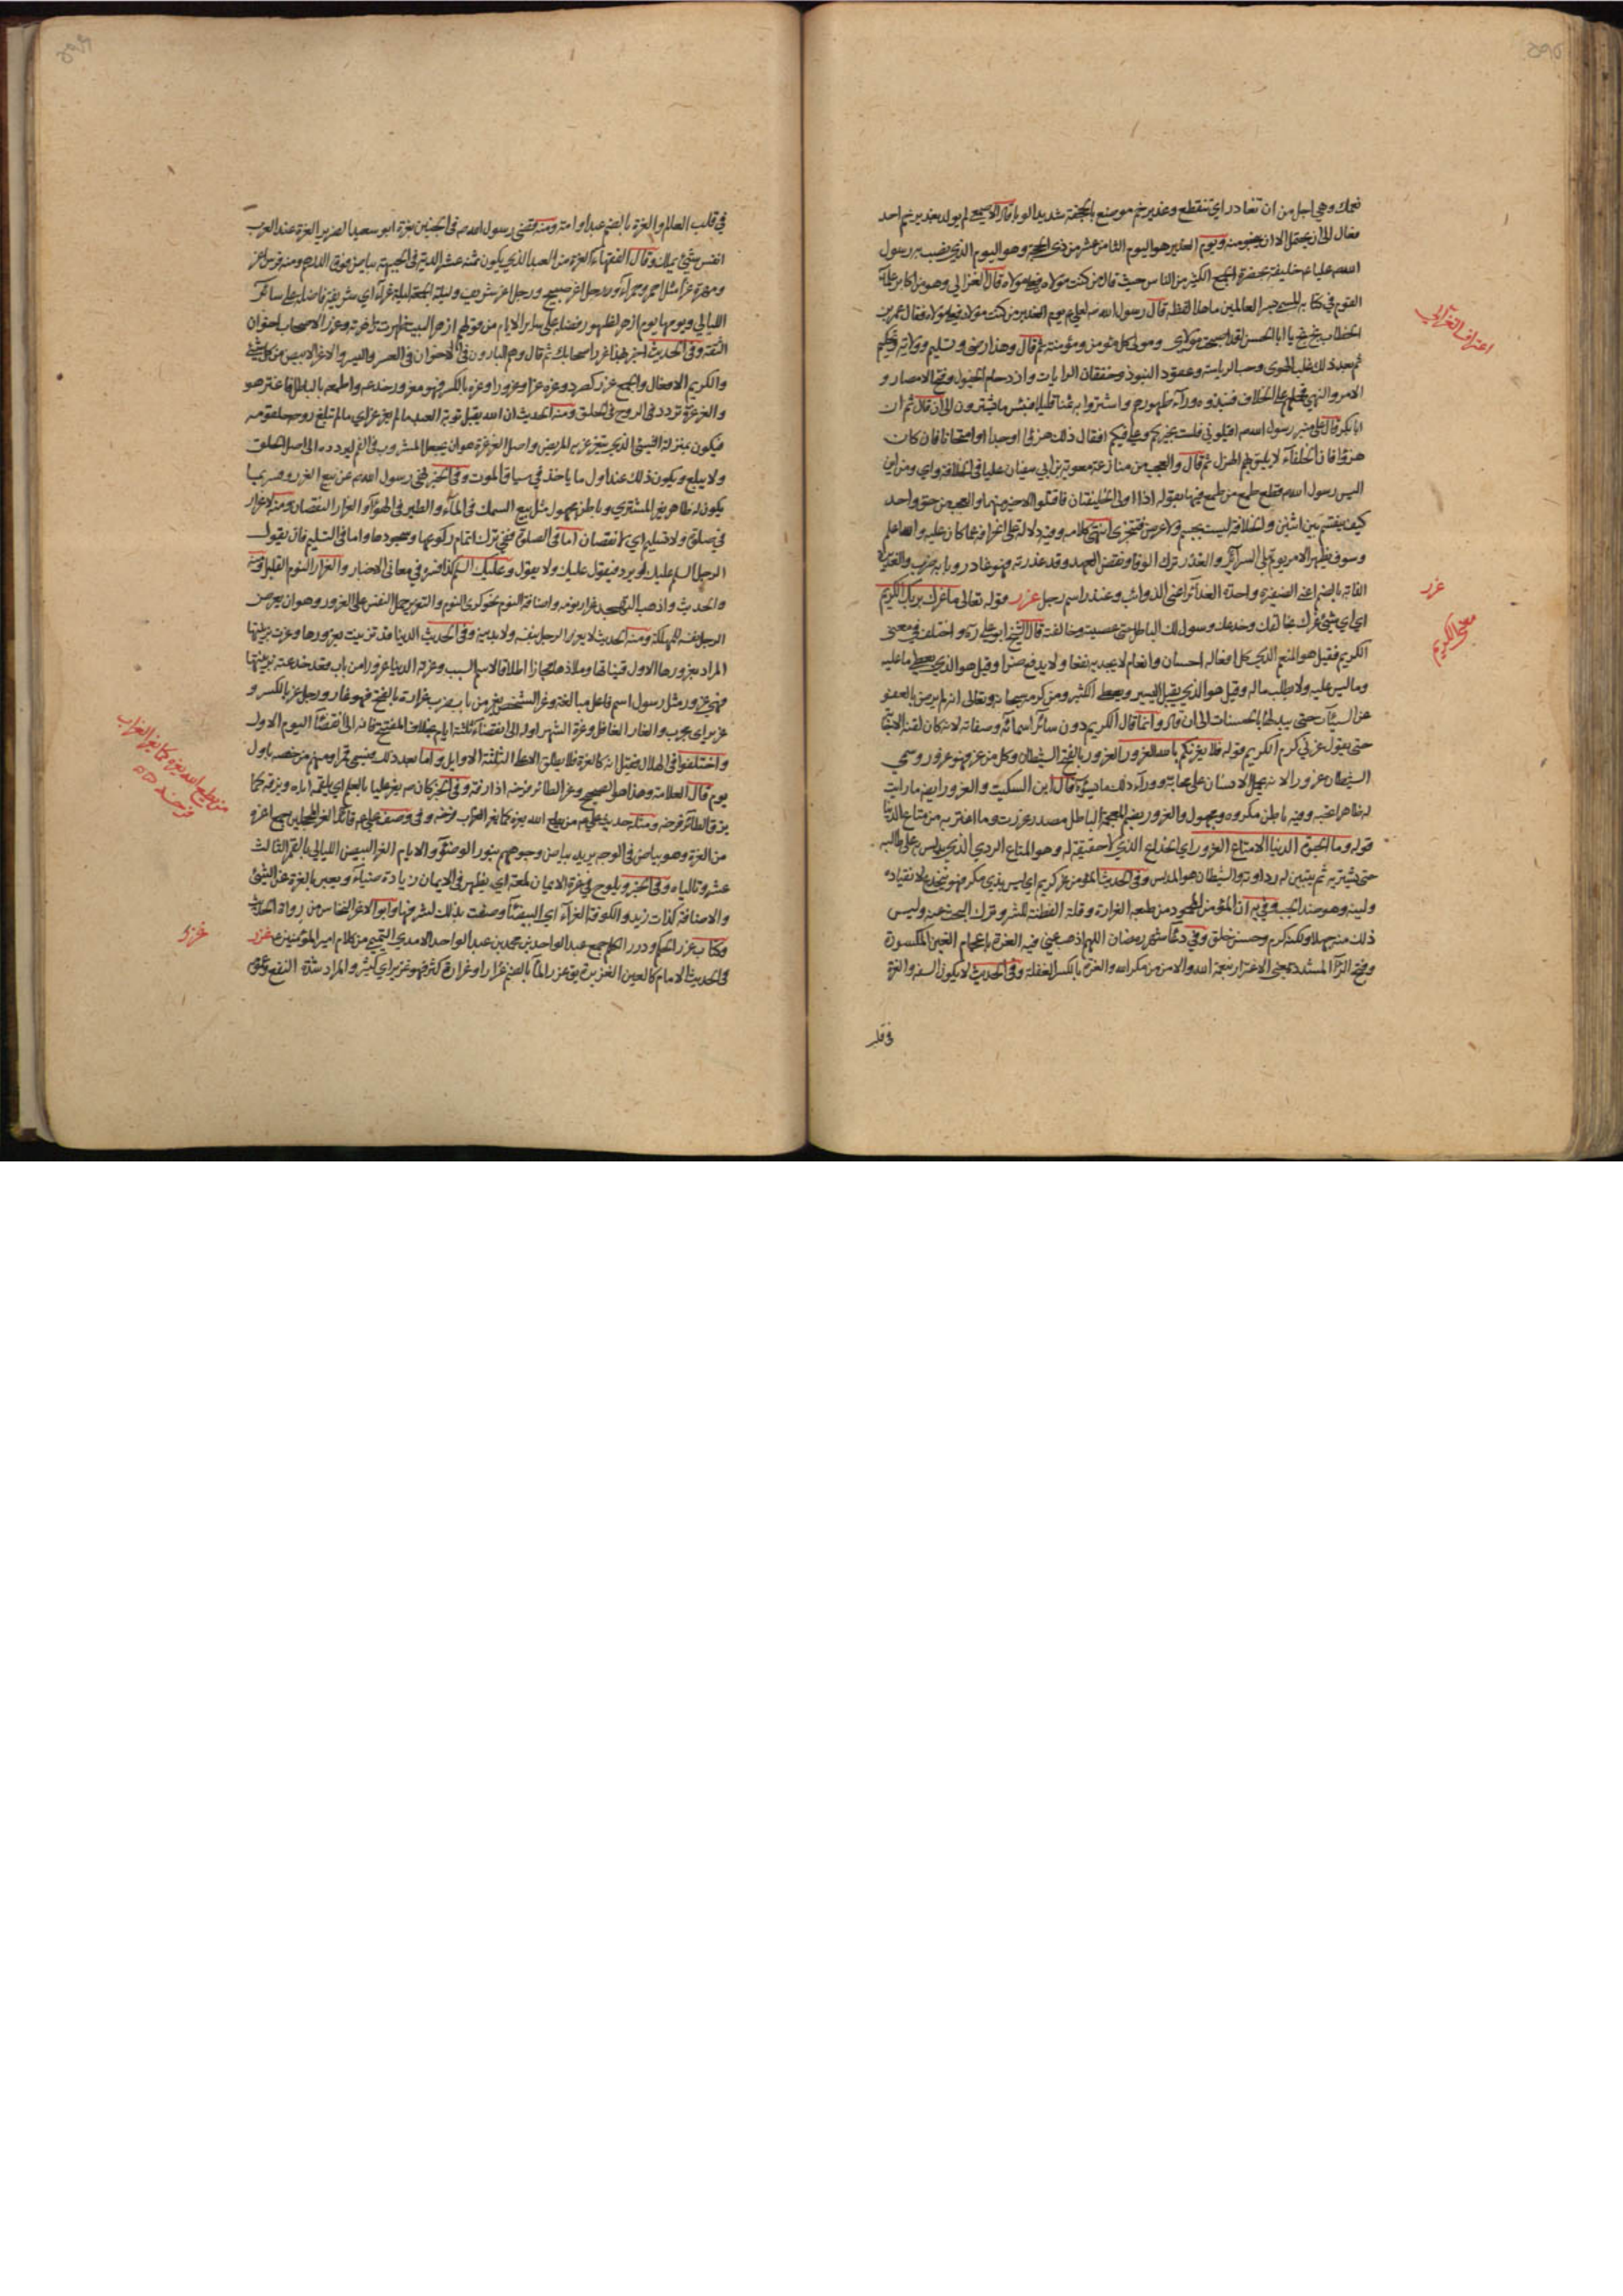 نعمك وهي اجل من ان تغادر اي تنقطع وغدير خم موضع بالجحفة شديد الوباء قال الاصمعي لم يولد بغدير خم احد
فعاش الى ان يحتلم الا ان ينجو منه ويوم الغدير هو اليوم الثامن عشر من ذي الحجة وهو اليوم الذي نصب به رسول
الله ص عليا ع خليفة بحضرة الجمع الكثير من الناس حيث قال من كنت مولاه فعلي مولاه قال الغزالي وهو من اكابر علماء
القوم في كتابه المسمى سر العالمين ما هذا لفظه قال رسول الله ص لعلي ع يوم الغدير من كنت مولاه فعلي مولاه فقال عمر بن
الخطاب بخ بخ يا ابا الحسن لقد اصبحت مولاي ومولى كل مؤمن ومؤمنة ثم قال وهذا رضى وتسليم وولاية وتحكيم
ثم بعد ذلك غلب الهوى وحب الرياسة وعقود البنود وخفقان الرايات وازدحام الخيول وفتح الامصار و
الامر والنهي فحملهم على الخلاف فنبذوه وراء ظهورهم واشتروا به ثمنا قليلا فبئس ما يشترون الى ان قال ثم ان
ابا بكر قال على منبر رسول الله ص اقيلوني فلست بخيركم وعلي فيكم افقال ذلك هزؤا او جدا او امتحانا فان كان
هزؤا فان الخلفاء لا يليق بهم الهزل ثم قال والعجب من منازعة معوية بن ابي سفيان عليا في الخلافة واي ومن اين
اليس رسول الله ص قطع طمع من طمع فيها بقوله اذا اولى الخليفتان فاقتلوا الاخير منهما والعجب من حق واحد
كيف ينقسم بين اثنين والخلافة ليست بجسم ولا عرض فتتجزى انتهى كلامه وفيه دلالة على انحرافه عما كان عليه والله اعلم
وسوف يظهر الامر يوم تبلى السرائر والغدر ترك الوفاء ونقض العهد وقد غدر به فهو غادر وبابه ضرب والغديرة
الغابة بالضم اعني الضفيرة واحدة الغدائر اعني الذوائب وغندر اسم رجل غرر قوله تعالى ما غرك بربك الكريم
اي اي شيء غرك بخالقك وخدعك وسول لك الباطل حتى عصيت وخالفت قال الشيخ ابو علي ره واختلف في معنى
الكريم فقيل هو المنعم الذي كل افعاله احسان وانعام لا يجد به نفعا ولا يدفع ضرا وقيل هو الذي يعطي ما عليه
وما ليس عليه ولا يطلب ما له وقيل هو الذي يقبل اليسير ويعطي الكثير ومن كرمه سبحانه وتعالى انه لم يرض بالعفو
عن السيئات حتى بدلها بالحسنات الى ان قال وانما قال الكريم دون سائر اسمائه وصفاته لانه كان لقنه الاجابة
حتى يقول غرني كرم الكريم قوله فلا يغرنكم بالله الغرور الغرور بالفتح الشيطان وكل من غر فهو غرور وسمي
الشيطان غرورا لانه يحمل الانسان على محابه ووراء ذلك ما يسوءه قال ابن السكيت والغرور ايضا ما رايت
له ظاهرا تحبه وفيه باطن مكروه ومجهول والغرور بضم المعجمة الباطل مصدر غررت وما اغتر به من متاع الدنيا
قوله وما الحيوة الدنيا الا متاع الغرور اي الخداع الذي لا حقيقة له وهو المتاع الردي الذي يدلس به على طالبه
حتى يشتريه ثم يتبين له رداوته والشيطان هو المدلس وفي الحديث المؤمن غر كريم اي ليس بذي مكر فهو ينخدع لانقياده
ولينه وهو ضد الخب وفي يه ان المؤمن المحمود من طبعه الغرارة وقلة الفطنة للشر وترك البحث عنه وليس
ذلك منه جهلا ولكنه كرم وحسن خلق وفي دعاء شهر رمضان اللهم اذهب عني فيه الغرة باعجام الغين المكسورة
وفتح الراء المشددة يعني الاغترار بنعمة الله والامن من مكر الله والغرة بالكسر الغفلة وفي الحديث لا يكون السفه والغرة
في قلب
اعتراف الغزالي
غرر
معنى الكريم
في قلب العالم والغرة بالضم عبد او امة ومنه قضى رسول الله ص في الجنين بغرة ابو سعيد الضرير الغرة عند العرب
انفس شيء يملك وقال الفقهاء الغرة من العبد الذي يكون ثمنه عشر الدية في الجبهة بياض فوق الدرهم ومنه فرس اغر
ومهرة غراء مثل احمر وحمراء ورجل اغر صبيح ورجل اغر شريف وليلة الجمعة ليلة غراء اي شريفة فاضلة على سائر
الليالي ويومها يوم ازهر لظهور فضله على ساير الايام من قولهم ازهر البيت ظهرت زاخرته وغرر الاصحاب اخوان
الثقة وفي الحديث اخبر بهذا غرر اصحابك ثم قال وهم البارون في الاخوان في العسر واليسر والاغر الابيض من كل شيء
والكريم الافعال والجمع غرر كصرد وغره غرا وغرورا وغرة بالكسر فهو مغرور خدعه واطمعه بالباطل فاغتر هو
والغرغرة تردد في الروح في الحلق ومنه الحديث ان الله يقبل توبة العبد ما لم يغرغر اي ما لم تبلغ روحه حلقومه
فيكون بمنزلة الشيء الذي يتغرغر به المريض واصل الغرغرة هو ان يجعل المشروب في الفم ليردده الى اصل الحلق
ولا يبلع ويكون ذلك عند اول ما ياخذ في سياق الموت وفي الخبر نهى رسول الله ص عن بيع الغرر وفسر بما
يكون له ظاهر يغر المشتري وباطن مجهول مثل بيع السمك في الماء والطير في الهواء والغرار النقصان ومنه لا غرار
في صلوة ولا تسليم اي لا نقصان اما في الصلوة ففي ترك اتمام ركوعها وسجودها واما في التسليم فان يقول
الرجل السلم عليك او يرد فيقول عليك ولا يقول وعليك السلم كذا فسر في معاني الاخبار والغرار النوم القليل ومنه
والحديث واذهب التهجد غرار نومه واضافة النوم نحو كرى النوم والتغرير حمل النفس على الغرور وهو ان يعرض
الرجل نفسه للمهلكة ومنه الحديث لا يغرر الرجل بنفسه ولا بدينه وفي الحديث الدنيا قد تزينت بغرورها وغرت بزينتها
المراد بغرورها الاول قيناتها وملاذها مجازا اطلاقا لاسم السبب وغرته الدنيا غرورا من باب قعد خدعته بزينتها
فهي غرور مثل رسول اسم فاعل مبالغة وغر الشخص يغر من باب ضرب غرارة بالفتح فهو غار ورجل غر بالكسر و
غرير اي مجرب والغار الغافل وغرة الشهر اوله الى انقضاء ثلثة ايام بخلاف المفتتح فانه الى انقضاء اليوم الاول
واختلفوا في الهلال فقيل انه كالغرة فلا يطلق الا على الثلثة الاوايل واما بعد ذلك فيسمى قمرا ومنهم من خصه باول
يوم قال العلامة وهذا هو الصحيح وغر الطائر فرخه اذا زقه وفي الخبر كان ص يغر عليا بالعلم اي يلقمه اياه ويزقه كما
يزق الطائر فرخه ومثله حديث علي ع من يطع الله يغره كما يغر الغراب فرخه وفي وصف علي ع قائد الغر المحجلين جمع اغر
من الغرة وهو بياض في الوجه يريد بياض وجوههم بنور الوضوء والايام الغر البيض الليالي بالقمر الثالث
عشر وتالياه وفي الخبر ويلوح في غرة الايمان لمعة اي يظهر في الايمان زيادة ضياء ويعبر بالغرة عن الشيء
والاضافة كذات زيد والكوفة الغراء اي البيضاء وصفت بذلك لشرفها وابو الاغر النخاس من رواة الحديث
وكتاب غرر الحكم ودرر الكلم جمع عبد الواحد بن محمد بن عبد الواحد الامدي التميمي من كلام امير المؤمنين ع غزر
في الحديث الامام كالعين الغزيرة يق غزر الماء بالضم غزارا وغزارة كثر فهو غزير اي كثير والمراد شدة النفع وعموم
من يطع الله يغره كما يغر الغراب
فرخه
غزر